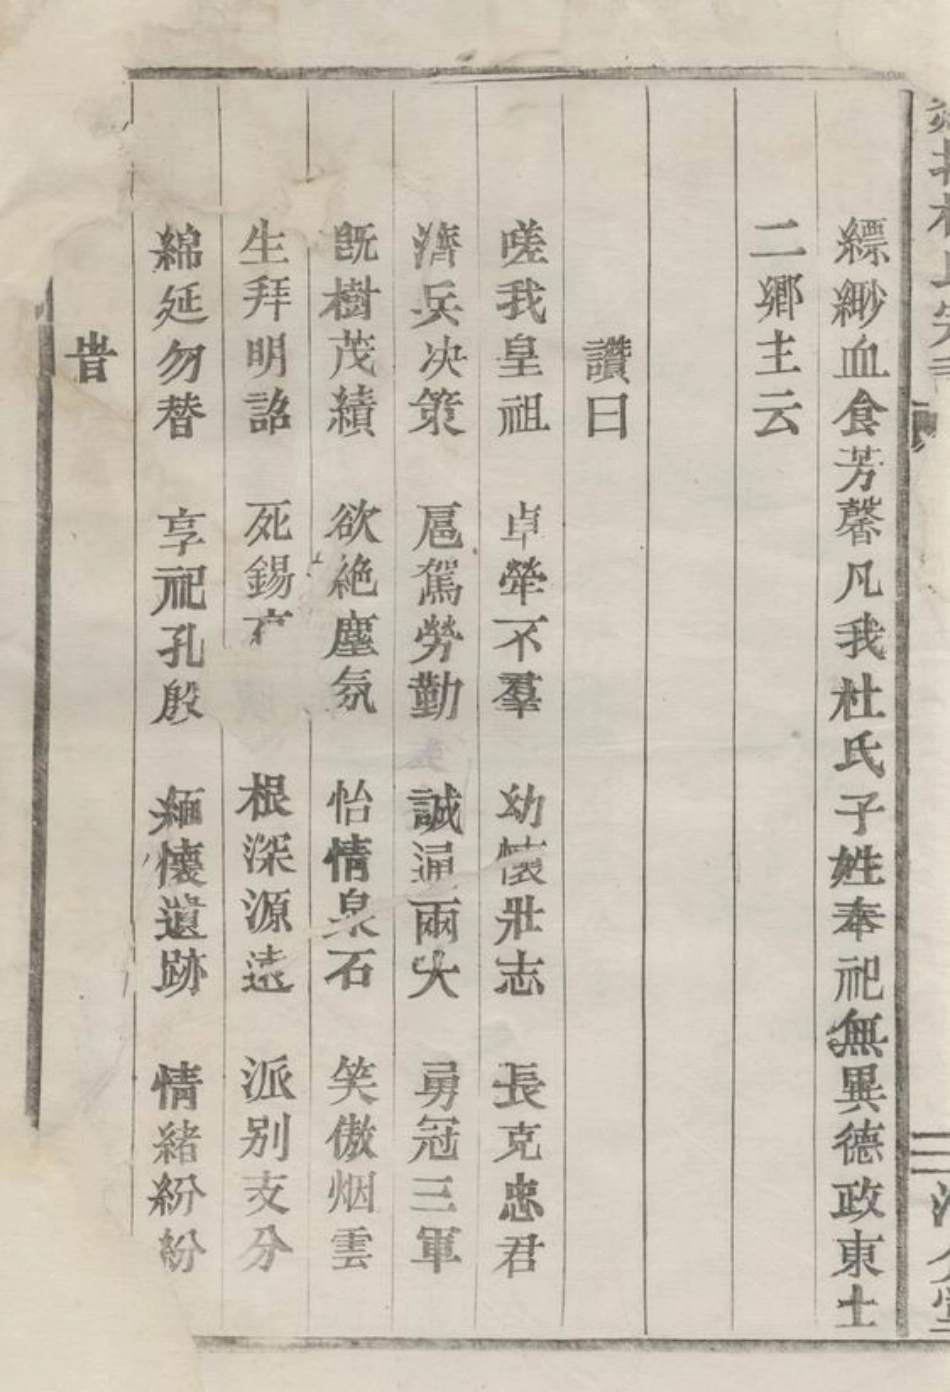 杜氏宗
縹緲血食芳馨凡我杜氏子姓奉祀無異德政東土
二鄉主云
讚曰
嗟我皇祖 卓犖不羣 幼懷壯志 長克忠君
濟兵決策 扈駕勞勤 誠通兩大 勇冠三軍
既樹茂績 欲絶塵氛 怡情泉石 笑傲烟雲
生拜明詔 死錫 根深源遠 派别支分
綿延勿替 享祀孔殷 緬懷遺跡 情緒紛紛
旹